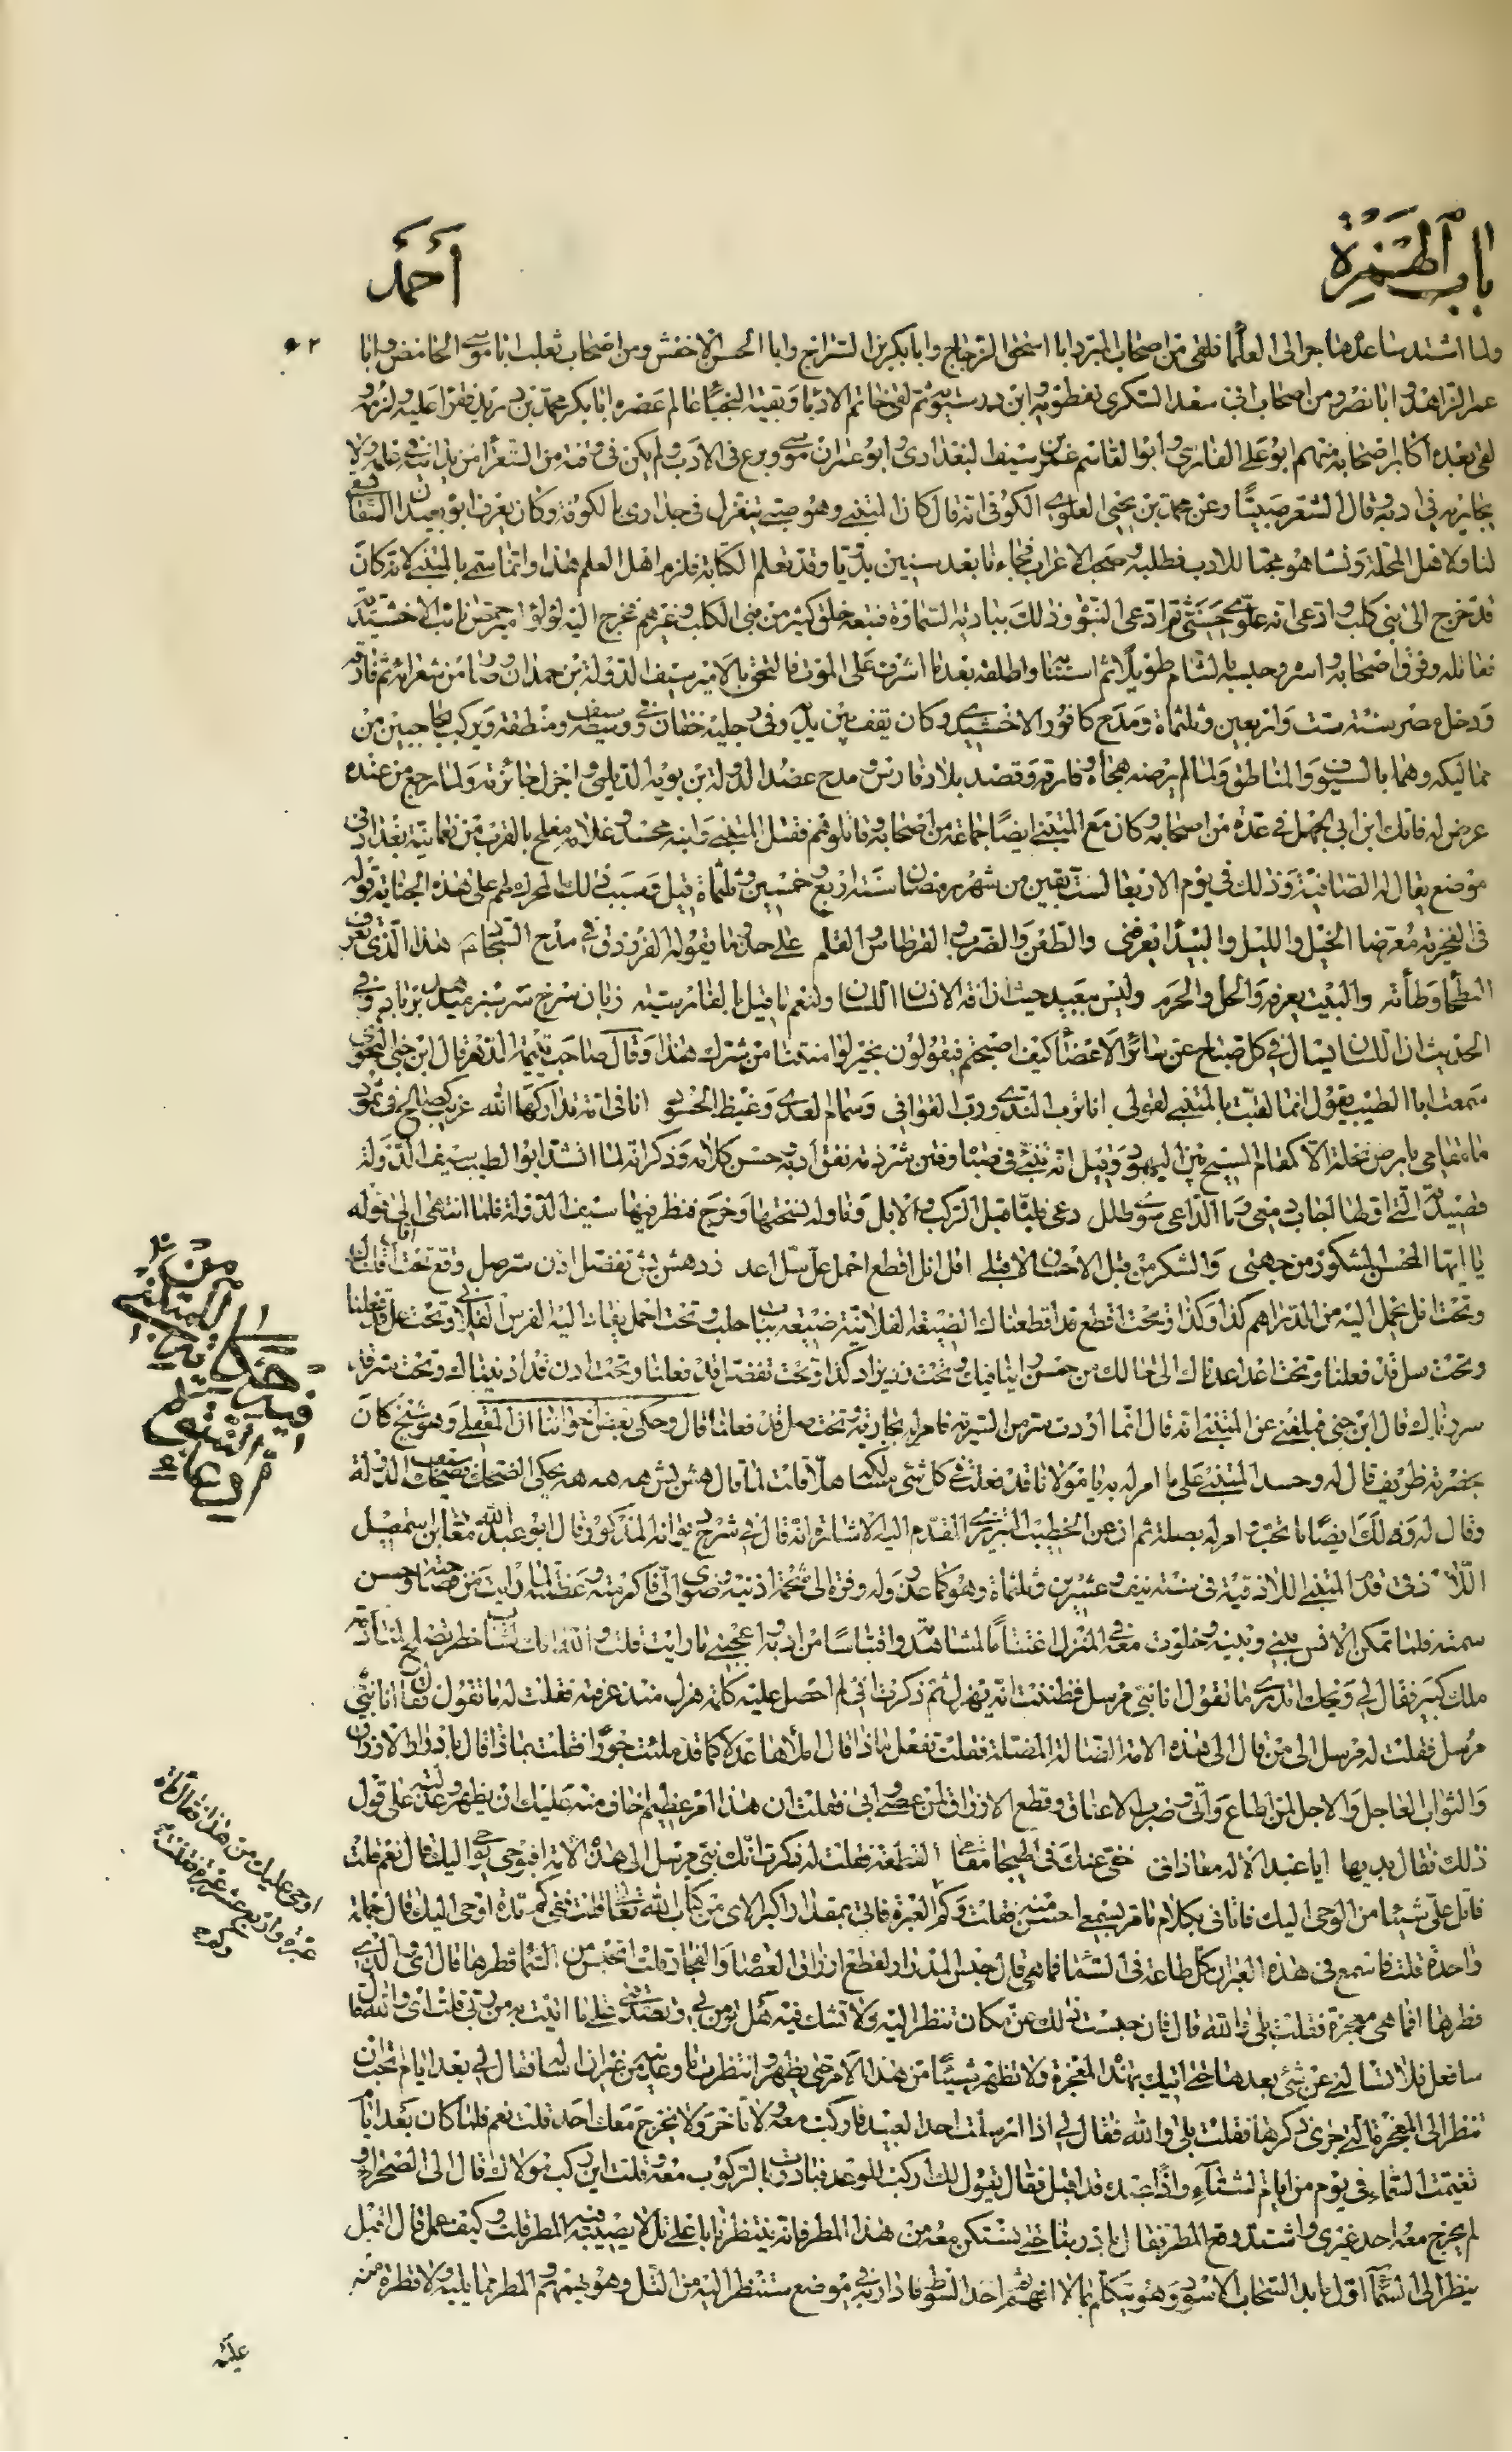 باب الهمزة
أحمد
ولما اشتد ساعده هاجر الى العلما فلقى من اصحاب المبرد ابا اسحق الزجاج وابا بكر بن السراج وابا الحسن الاخفش ومن اصحاب ثعلب ابا موسى الحامض وابا
عمر الزاهد وابا نصر ومن اصحاب ابى سعد السكرى نفطويه وابن درستويه ثم لقى خاتم الادبا وبقية النجبا عالم عصره ابا بكر محمد بن دريد فقرا عليه ولزمه
لقى بعده اكابر اصحابه منهم ابو على الفارسى وابو القاسم عمر بن سيف البغدادى وابو عمران موسى وبرع فى الادب ولم يكن فى وقته من الشعرا من يدانيه فى علمه ولا
يجاريه فى ادبه وقال الشعر صبيا وعن محمد بن يحيى العلوى الكوفى انه قال كان المتنبى وهو صبى ينزل فى جوارى بالكوفة وكان يعرف ابوه بعبدان السقا يسقى
لنا ولاهل المحلة ونشا هو محبا للادب فطلبه وصحب الاعراب فجاءنا بعد سنين بدويا وقد تعلم الكتابة فلزم اهل العلم هذا وانما سمى بالمتنبى لانه كان
قد خرج الى بنى كلب وادعى انه علوى حسنى ثم ادعى النبوة وذلك ببادية السماوة فتبعه خلق كثير من بنى الكلب وغيرهم فخرج اليه لؤلؤ امير حمص نائب الاخشيدية
فقاتله وفرق اصحابه واسره وحبسه بالشام طويلا ثم استتابه واطلقه بعد ما اشرف على الموت فالتحق بالامير سيف الدولة بن حمدان وصار من شعرائه ثم فارقه
ودخل مصر سنة ست واربعين وثلثماة ومدح كافور الاخشيدى وكان يقف بين يديه وفى رجليه خفان وفى وسطه سيف ومنطقة ويركب بحاجبين من
مماليكه وهما بالسيوف والمناطق ولما لم يرضه هجاه وفارقه وقصد بلاد فارس ومدح عضد الدولة بن بويه الديلمى واجزل جائزته ولما رجع من عنده
عرض له فاتك ابن ابى الجهل فى عدة من اصحابه وكان مع المتنبى ايضا جماعة من اصحابه وقاتلوهم فقتل المتنبى وابنه محسد وغلامه مفلح بالقرب من نعمانية بغداد فى
موضع يقال له الصافية وذلك فى يوم الاربعا لست بقين من شهر رمضان سنة اربع وخمسين وثلثماة قيل وسبب ذلك المحرك لهم على هذه الجناية قوله
فى الفخرية معرضا الخيل والليل والبيدا تعرفنى والطعن والضرب والقرطاس والقلم على حذو ما يقوله الفرزدق فى مدح السجاد هذا الذى تعرف
البطحا وطأته والبيت يعرفه والحل والحرم وليس ببعيد حيث ان آفة الانسان اللسان ولنعم ما قيل بالفارسيته زبان سرخ سر سبز ميدهد بر باد وفى
الحديث ان اللسان يسال فى كل صباح عن سائر الاعضا كيف اصبحتم فيقولون بخير لو امنتنا من شرك هذا وقال صاحب يتيمة الدهر قال ابن جنى النحوى
سمعت ابا الطيب يقول انما لقبت بالمتنبى لقولى انا ترب الندى ورب القوافى وسمام العدى وغيظ الحسود انا فى امة تداركها الله غريب كصالح فى ثمود
ما مقامى بارض نخلة الا كمقام المسيح بين اليهود وقيل انه تنبئ فى صباه وفتن شرذمة بقوة ادبه وحسن كلامه وذكر انه لما انشد ابو الطيب سيف الدولة
قصيدته التى اولها اجاب دمعى وما الداعى سوى طلل دعى فلباه قبل الركب والابل وناوله نسختها وخرج فنظر فيها سيف الدولة فلما انتهى الى قوله
يا ايها المحسن المشكور من جهتى والشكر من قبل الاحسان لا قبلى اقل انل اقطع احمل عل سل اعد زد هش بش تفضل ادن سر صل وقع تحت اقل قد اقلناك
وتحت انل يحمل اليه من الدراهم كذا وكذا وتحت اقطع قد اقطعناك الضيعة الفلانية ضيعة بباب حلب وتحت احمل يقاد اليه الفرس الفلانى وتحت عل قد فعلنا
وتحت سل قد فعلنا وتحت اعد اعدناك الى حالك من حسن راينا فيك وتحت زد يزاد كذا وتحت تفضل قد فعلنا وتحت ادن قد ادنيناك وتحت سر قد
سررناك قال ابن جنى فبلغنى عن المتنبى انه قال انما اردت سر من السرية فامر له بجارية وتحت صل قد فعلنا قال وحكى بعض اخواننا ان المعقلى وهو شيخ كان
بحضرته ظريف قال له وحسد المتنبى على ما امر له به يا مولانا قد فعلت له كل شئ سالكه هلا قلت لما قال هش بش هه هه هه يحكى الضحك فضحك سيف الدولة
وقال له ولك ايضا ما تحب وامر له بصلة ثم ان عن الخطيب التبريزى المقدم اليه الاشارة انه قال فى شرح ديوانه المذكور قال ابو عبد الله معاذ بن اسمعيل
اللاذقى قدم المتنبى اللاذقية فى سنة نيف وعشرين وثلثماة وهو كما عذر وله وفرة الى شحمة اذنيه وضوى الى فاكرمته وعظمته لما رايت من فصاحته وحسن
سمته فلما تمكن الانس بينى وبينه وخلوت معه فى المنزل اغتناما لمشاهدته واقتباسا من ادبه واعجبنى ما رايت قلت والله انك لشاب خطير تصلح لمنادمة
ملك كبير فقال لى ويحك اتدرى ما تقول انا نبى مرسل فظننت انه يهزل ثم ذكرت انى لم احصل عليه كلمة هزل منذ عرفته فقلت له ما تقول فقال انا نبى
مرسل فقلت له مرسل الى من قال الى هذه الامة الضالة المضلة فقلت تفعل ماذا قال املأها عدلا كما قد ملئت جورا قلت بماذا قال بادرار الارزاق
والثواب العاجل والاجل لمن اطاع واتى وضرب الاعناق وقطع الارزاق لمن عصى وابى فقلت ان هذا امر عظيم اخاف منه عليك ان يظهر وعذلته على قول
ذلك فقال بديها ايا عبد الاله معاذ انى خفى عنك فى الهيجا مقامى القطعة فقلت له ذكرت انك نبى مرسل الى هذه الامة افيوحى اليك قال نعم قلت
فاتل على شيئا من الوحى اليك فاتانى بكلام ما مر بسمعى احسن منه فقلت وكم العبرة فاتى بمقدار اكبر الاى من كتاب الله تعالى قلت ففى كم تارة اوحى اليك قال جملة
واحدة قلت فاسمع فى هذه العبر ان لك طاعة فى السما فما هى قال حبس المدرار لقطع ارزاق العصاة والفجار قلت اتحبس من السما قطرها قال اى والذى
فطرها افما هى معجزة فقلت بلى والله قال فان حبست ذلك عن مكان تنظر اليه ولا تشك فيه هل تؤمن بى وتصدقنى على ما اتيت به من ربى قلت اى والله قال
سافعل فلا تسالنى عن شئ بعدها حتى اتيك بهذه المعجزة ولا تظهر شيئا من هذا الامر حتى يظهر وانتظر ما وعدته من غير ان تساله فقال لى بعد ايام تحب ان
تنظر الى المعجزة التى جرى ذكرها فقلت بلى والله فقال لى اذا ارسلت احد العبيد فاركب معه ولا تاخر ولا يخرج معك احد قلت نعم فلما كان بعد ايام
تغيمت السماء فى يوم من ايام الشتاء واذا عبده قد اقبل فقال يقول لك اركب للوعد فبادرت بالركوب معه وقلت اين ركب مولاك قال الى الصحرا و
لم يخرج معه احد غيرى واشتد وقع المطر فقال بادر بنا حتى نستكن معه من هذا المطر فانه ينتظرنا باعلى تل لا يصيبه فيه المطر قلت وكيف عمل قال اقبل
ينظر الى السما اول ما بدا السحاب الاسود وهو يتكلم بما لا افهم ثم اخذ السوط فادار به فى موضع ستنظر اليه من التل وهو يهمهم والمطر مما يليه ولا قطرة منه
عليه